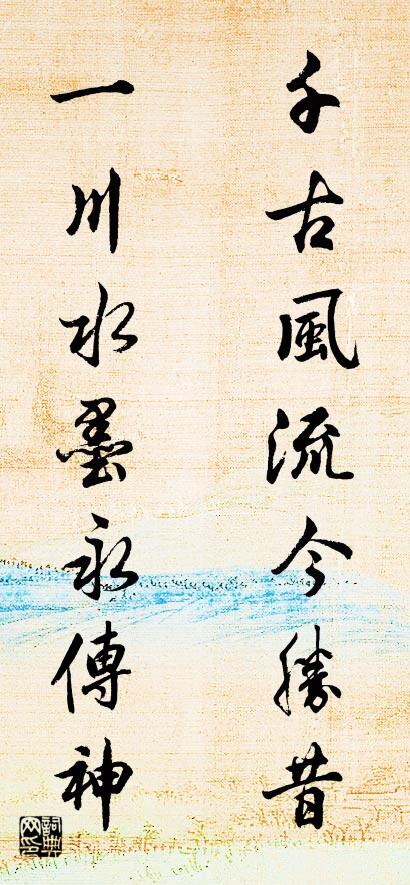 千古風流今勝昔
一川水墨永傳神
詞典网印